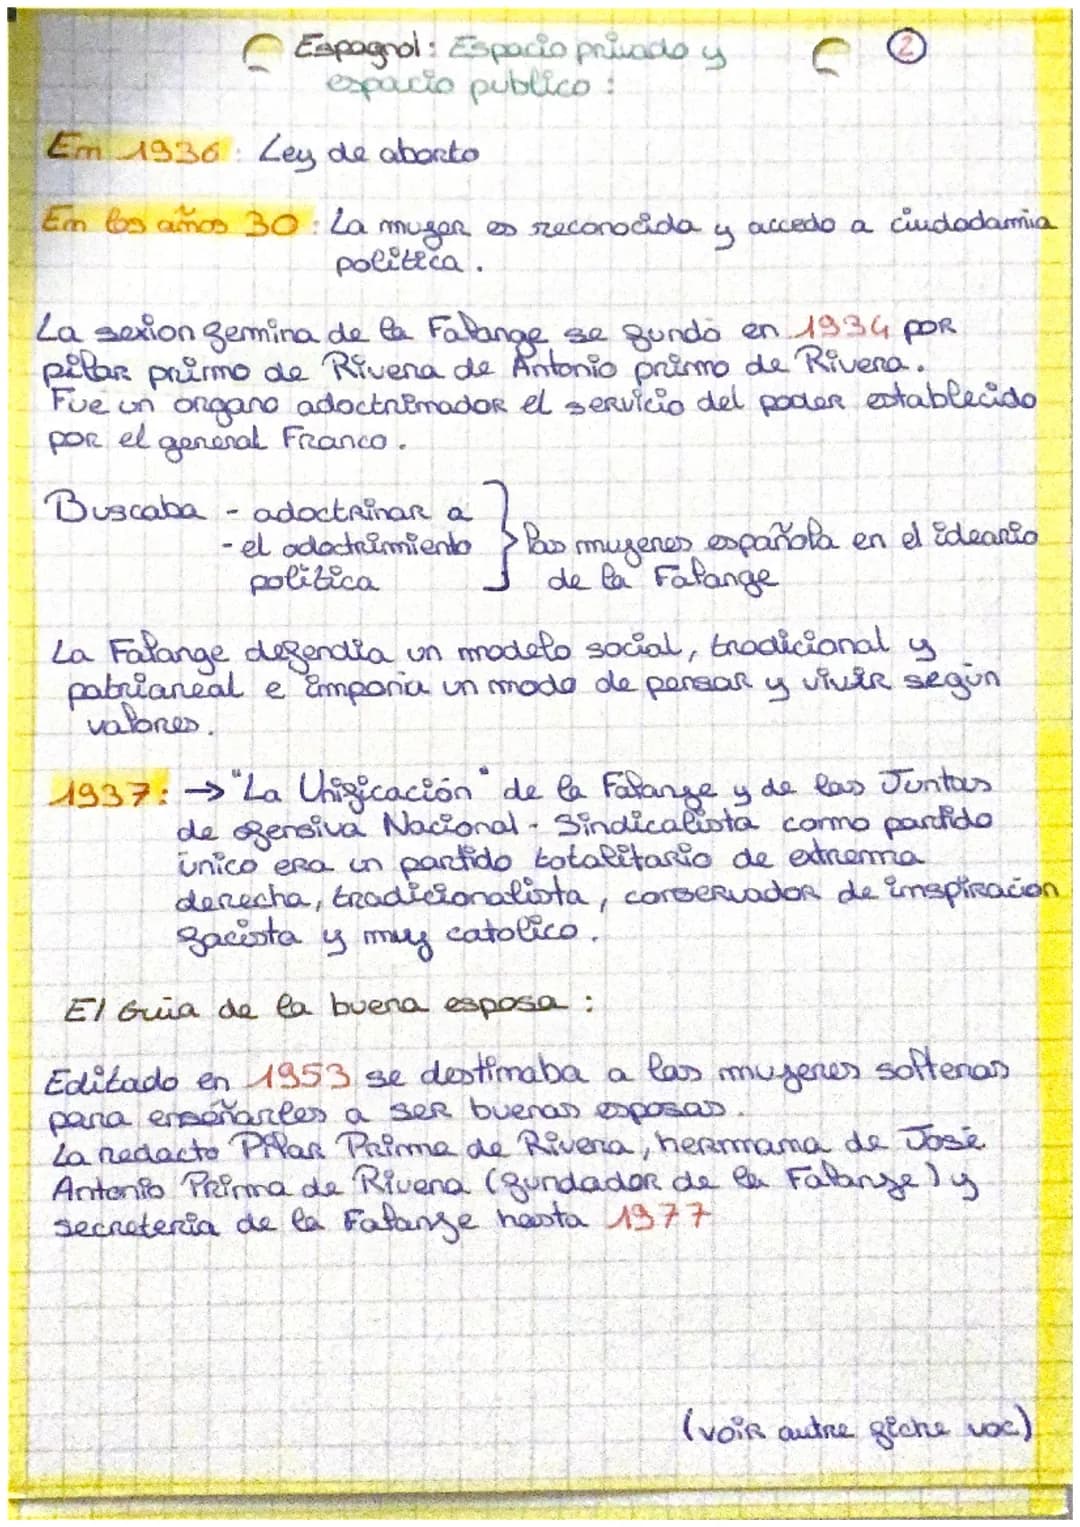 Espagnol : Espacio privado y
②
espacio publico :
Em 1936 : Ley de aborto
Em los años 30 : La muger es reconocida y accedo a ciudadamia
politica .
La sexion gemina de la Falange se fundó en 1934 por
pilar primo de Rivera de Antonio primo de Rivera .
Fue un organo adoctrimador el servicio del poder establecido
por el general Franco .
Buscaba - adoctrinar a
- el adoctrimiento
politica
las mugeres española en el ideario
de la Falange
La Falange defendia un modelo social, tradicional y
patriareal e imponia un modo de pensar y vivir según
valores .
1937 : → "La Unificación" de la Falange y de las Juntas
de ofensiva Nacional - Sindicalista como partido
único era un partido totalitario de extrema
derecha, tradicionalista, conservador de inspiracion
facista y muy catolico .
El Guia de la buena esposa :
Editado en 1953 se destimaba a las mugeres solteras
para enseñarles a ser buenas esposas .
La redacto Pilar Prima de Rivera, hermama de José
Antonio Prima de Rivena (fundador de la Falange) y
secreteria de la Falange hasta 1977
(voir autre fiche voc)